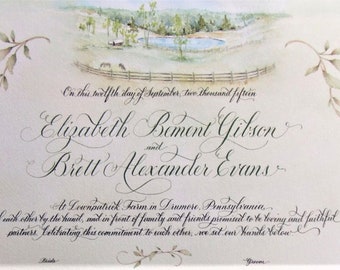 On this twelfth day of September, two thousand fifteen
Elizabeth Bement Gibson
and
Brett Alexander Evans
At Downpatrick Farm in Drumore, Pennsylvania
each other by the hand, and in front of family and friends promised to be loving and faithful
partners. Celebrating this commitment to each other, we set our hands below
Bride Groom